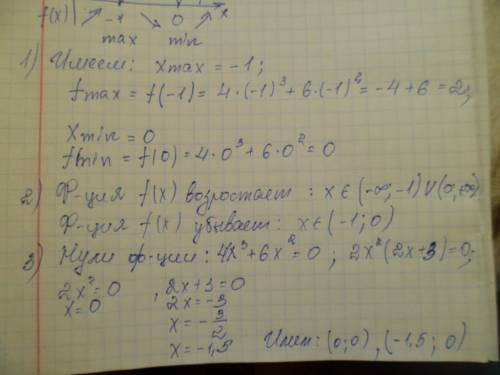 f(x) -1 0 x
max min
1) Имеем: xmax = -1;
fmax = f(-1) = 4·(-1)³ + 6·(-1)² = -4+6 = 2;
Xmin = 0
fmin = f(0) = 4·0³ + 6·0² = 0
2) Ф-ция f(x) возростает : x∈(-∞,-1)∪(0,+∞)
Ф-ция f(x) убывает: x∈(-1;0)
3) Нули ф-ции: 4x³+6x²=0 ; 2x²(2x+3)=0;
2x²=0 , 2x+3=0
x=0 2x=-3
x=-3/2
x=-1,5 Имеем: (0;0), (-1,5; 0)